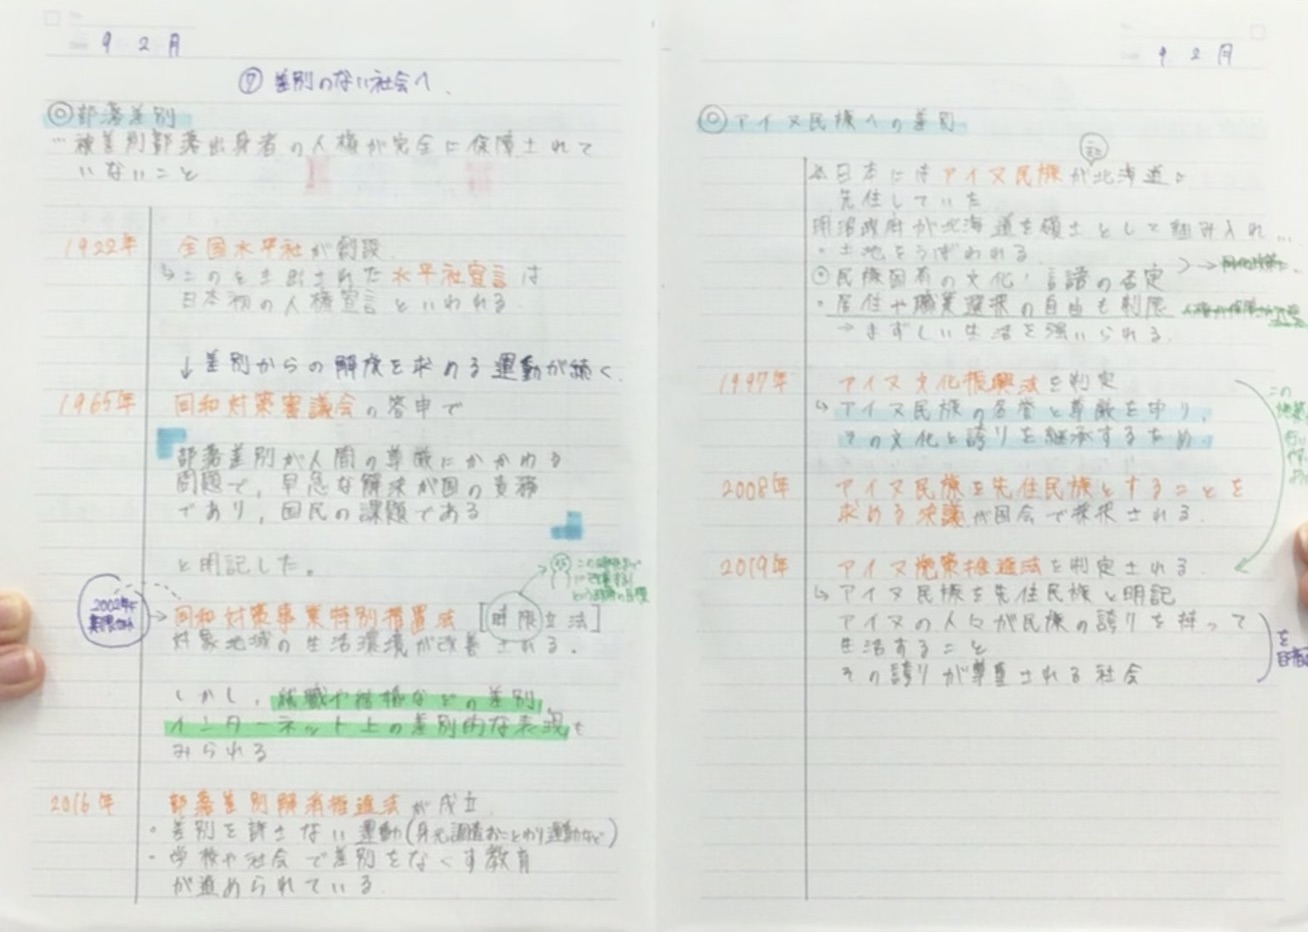 9 2 月
⑦ 差別のない社会へ
◎部落差別
…被差別部落出身者の人権が完全に保障されて
いないこと
1922年 全国水平社が創設
↳このとき出された水平社宣言は
日本初の人権宣言といわれる
↓差別からの解放を求める運動が続く
1965年 同和対策審議会の答申で
部落差別が人間の尊厳にかかわる
問題で、早急な解決が国の責務
であり、国民の課題である
と明記した。
2002年に
期限切れ
→同和対策事業特別措置法 [時限立法]
対象地域の生活環境が改善される.
しかし、就職や結婚などの差別、
インターネット上の差別的な表現も
みられる
2016年 部落差別解消推進法が成立
・差別を許さない運動(身元調査おことわり運動など)
・学校や社会で差別をなくす教育
が進められている
9 2 月
◎アイヌ民族への差別
日本にはアイヌ民族が北海道に
先住していた
明治政府が北海道を領土として組み入れ…
・土地をうばわれる
◎民族固有の文化・言語の否定
・居住や職業選択の自由も制限
→まずしい生活を強いられる.
1997年 アイヌ文化振興法を制定
↳アイヌ民族の名誉と尊厳を守り、
その文化と誇りを継承するため
2008年 アイヌ民族を先住民族とすることを
求める決議が国会で採択される
2019年 アイヌ施策推進法を制定される
↳アイヌ民族を先住民族と明記
アイヌの人々が民族の誇りを持って
生活すること
その誇りが尊重される社会
を